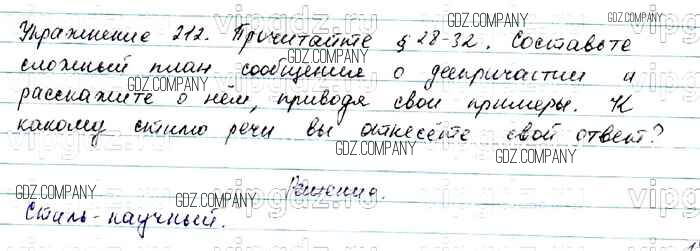 Упражнение 212. Прочитайте § 28-32. Составьте
сложный план сообщения о деепричастии и
расскажите о нём, приводя свои примеры. К
какому стилю речи вы отнесёте свой ответ?
Решение.
Стиль - научный.
GDZ.COMPANY
GDZ.COMPANY
GDZ.COMPANY
GDZ.COMPANY
GDZ.COMPANY
GDZ.COMPANY
GDZ.COMPANY
GDZ.COMPANY
vipgdz.ru